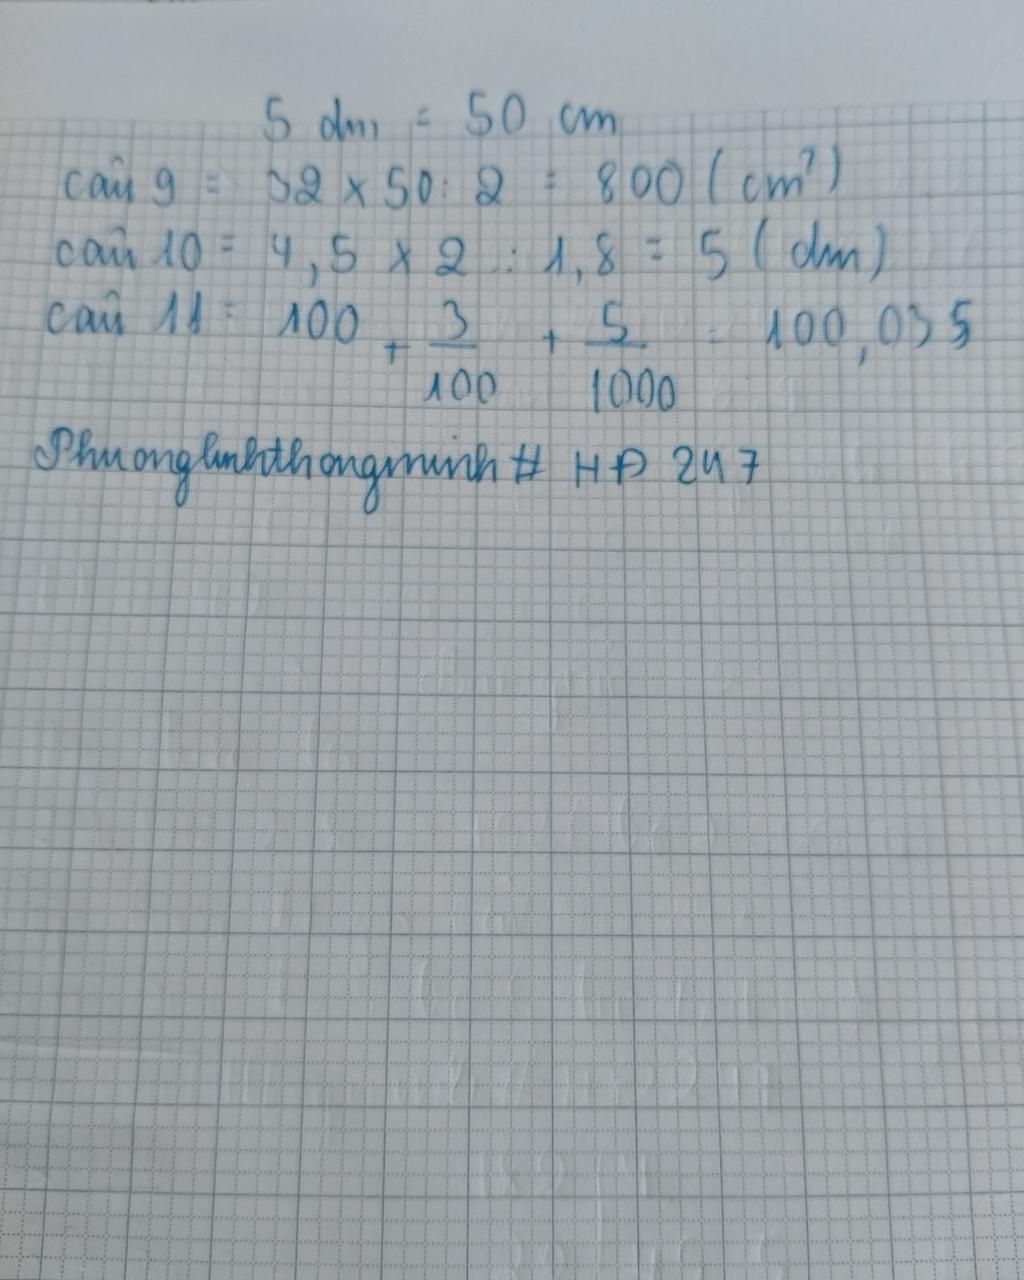 5 dm = 50 cm
câu 9 = 32 x 50 : 2 = 800 ( cm²)
câu 10 = 4,5 x 2 : 1,8 = 5 ( dm)
câu 11 = 100 + 3/100 + 5/1000 = 100,035
Phuonglinhthongminh # HP 247